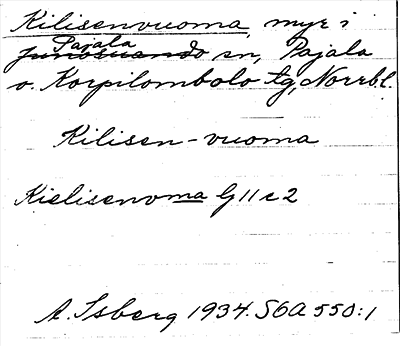 Kilisenvuoma, myr i
Pajala
Junosuando sn, Pajala
o. Korpilombolo tg, Norrb.l.
Kilisen-vuoma
Kielisenvma Gll c2
A. Isberg 1934. S6A 550:1